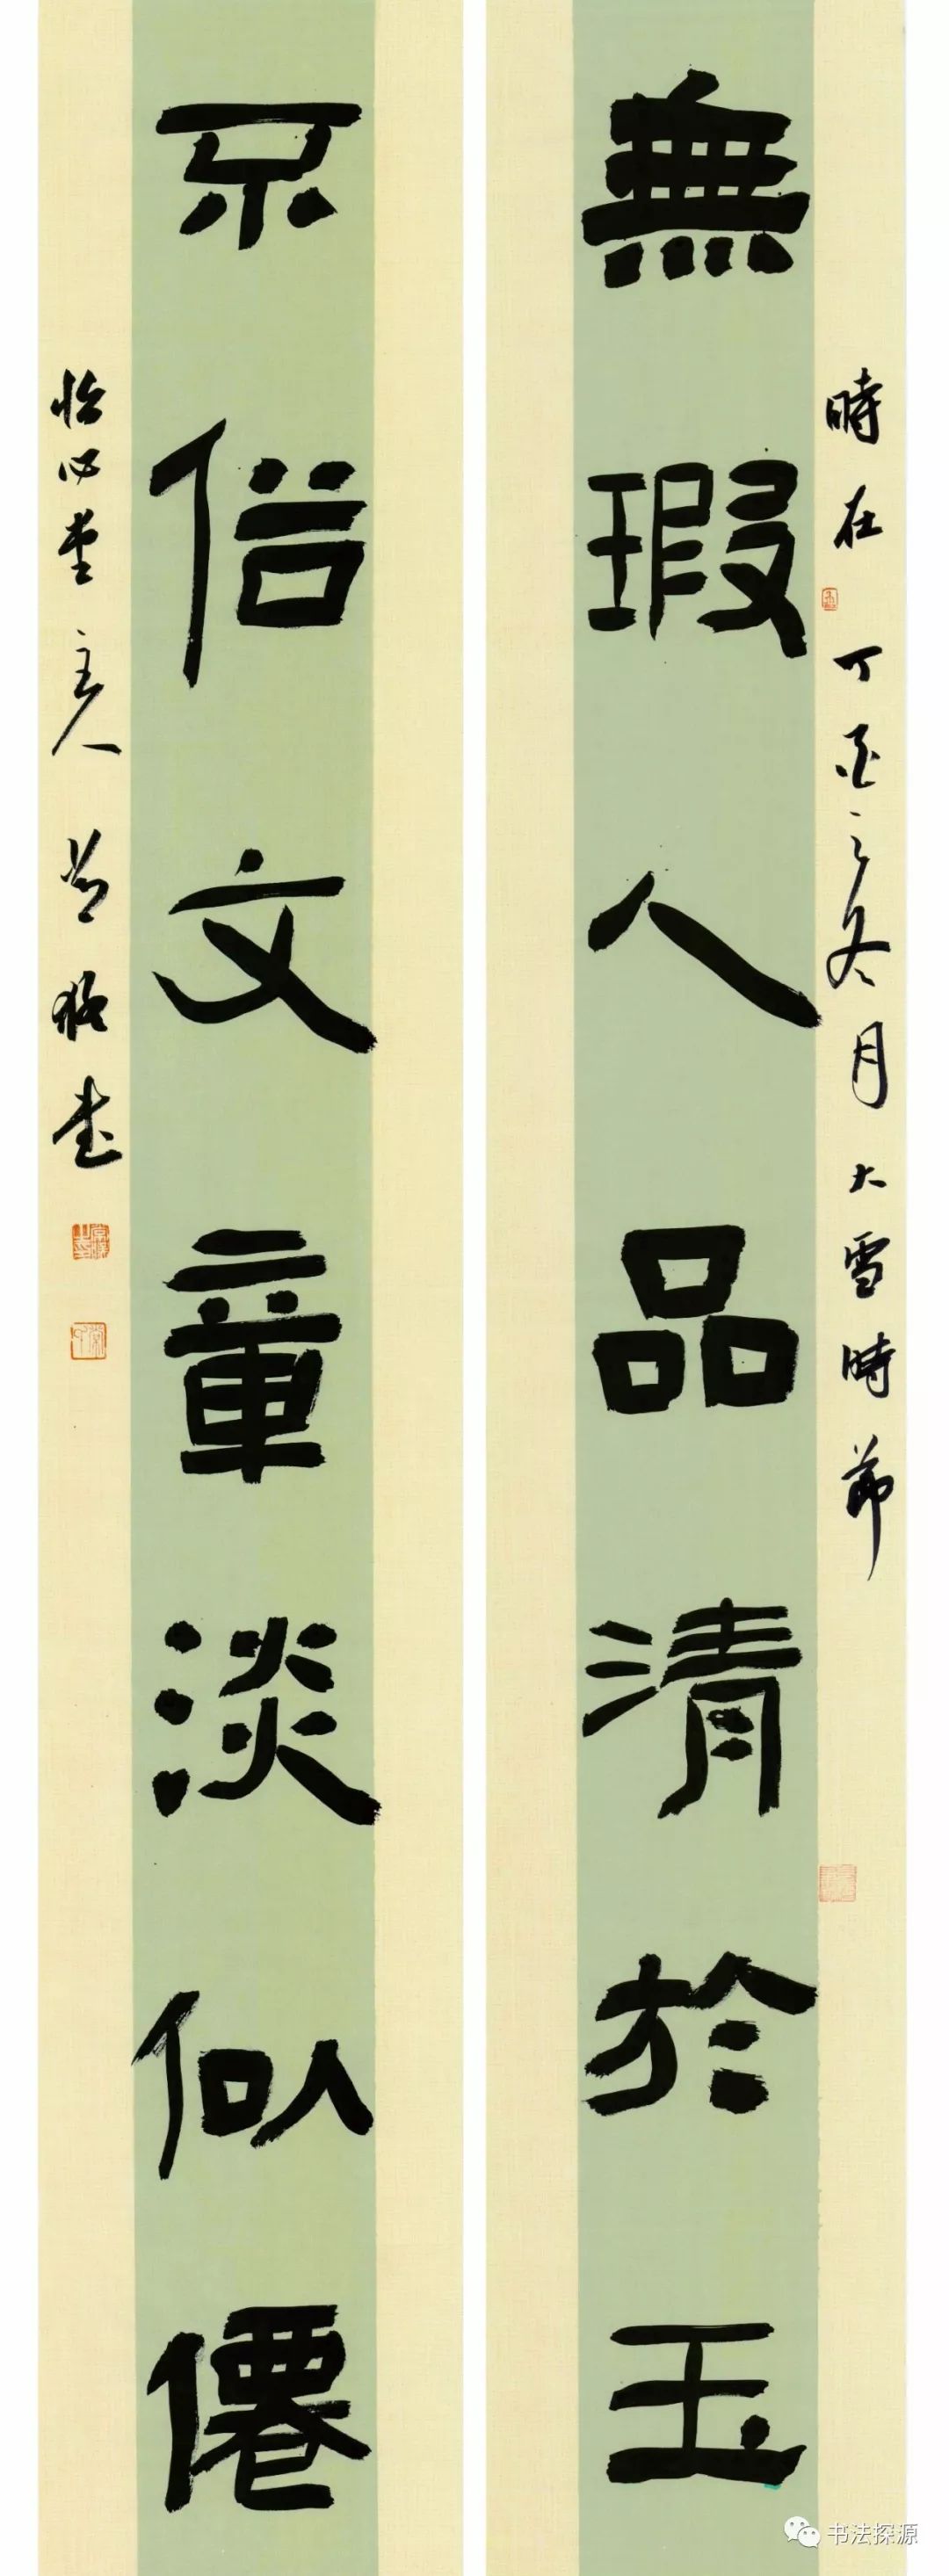 無瑕人品清於玉
不俗文章淡似僊
時在丁酉之冬月大雪時節
怡心堂主人
书法探源